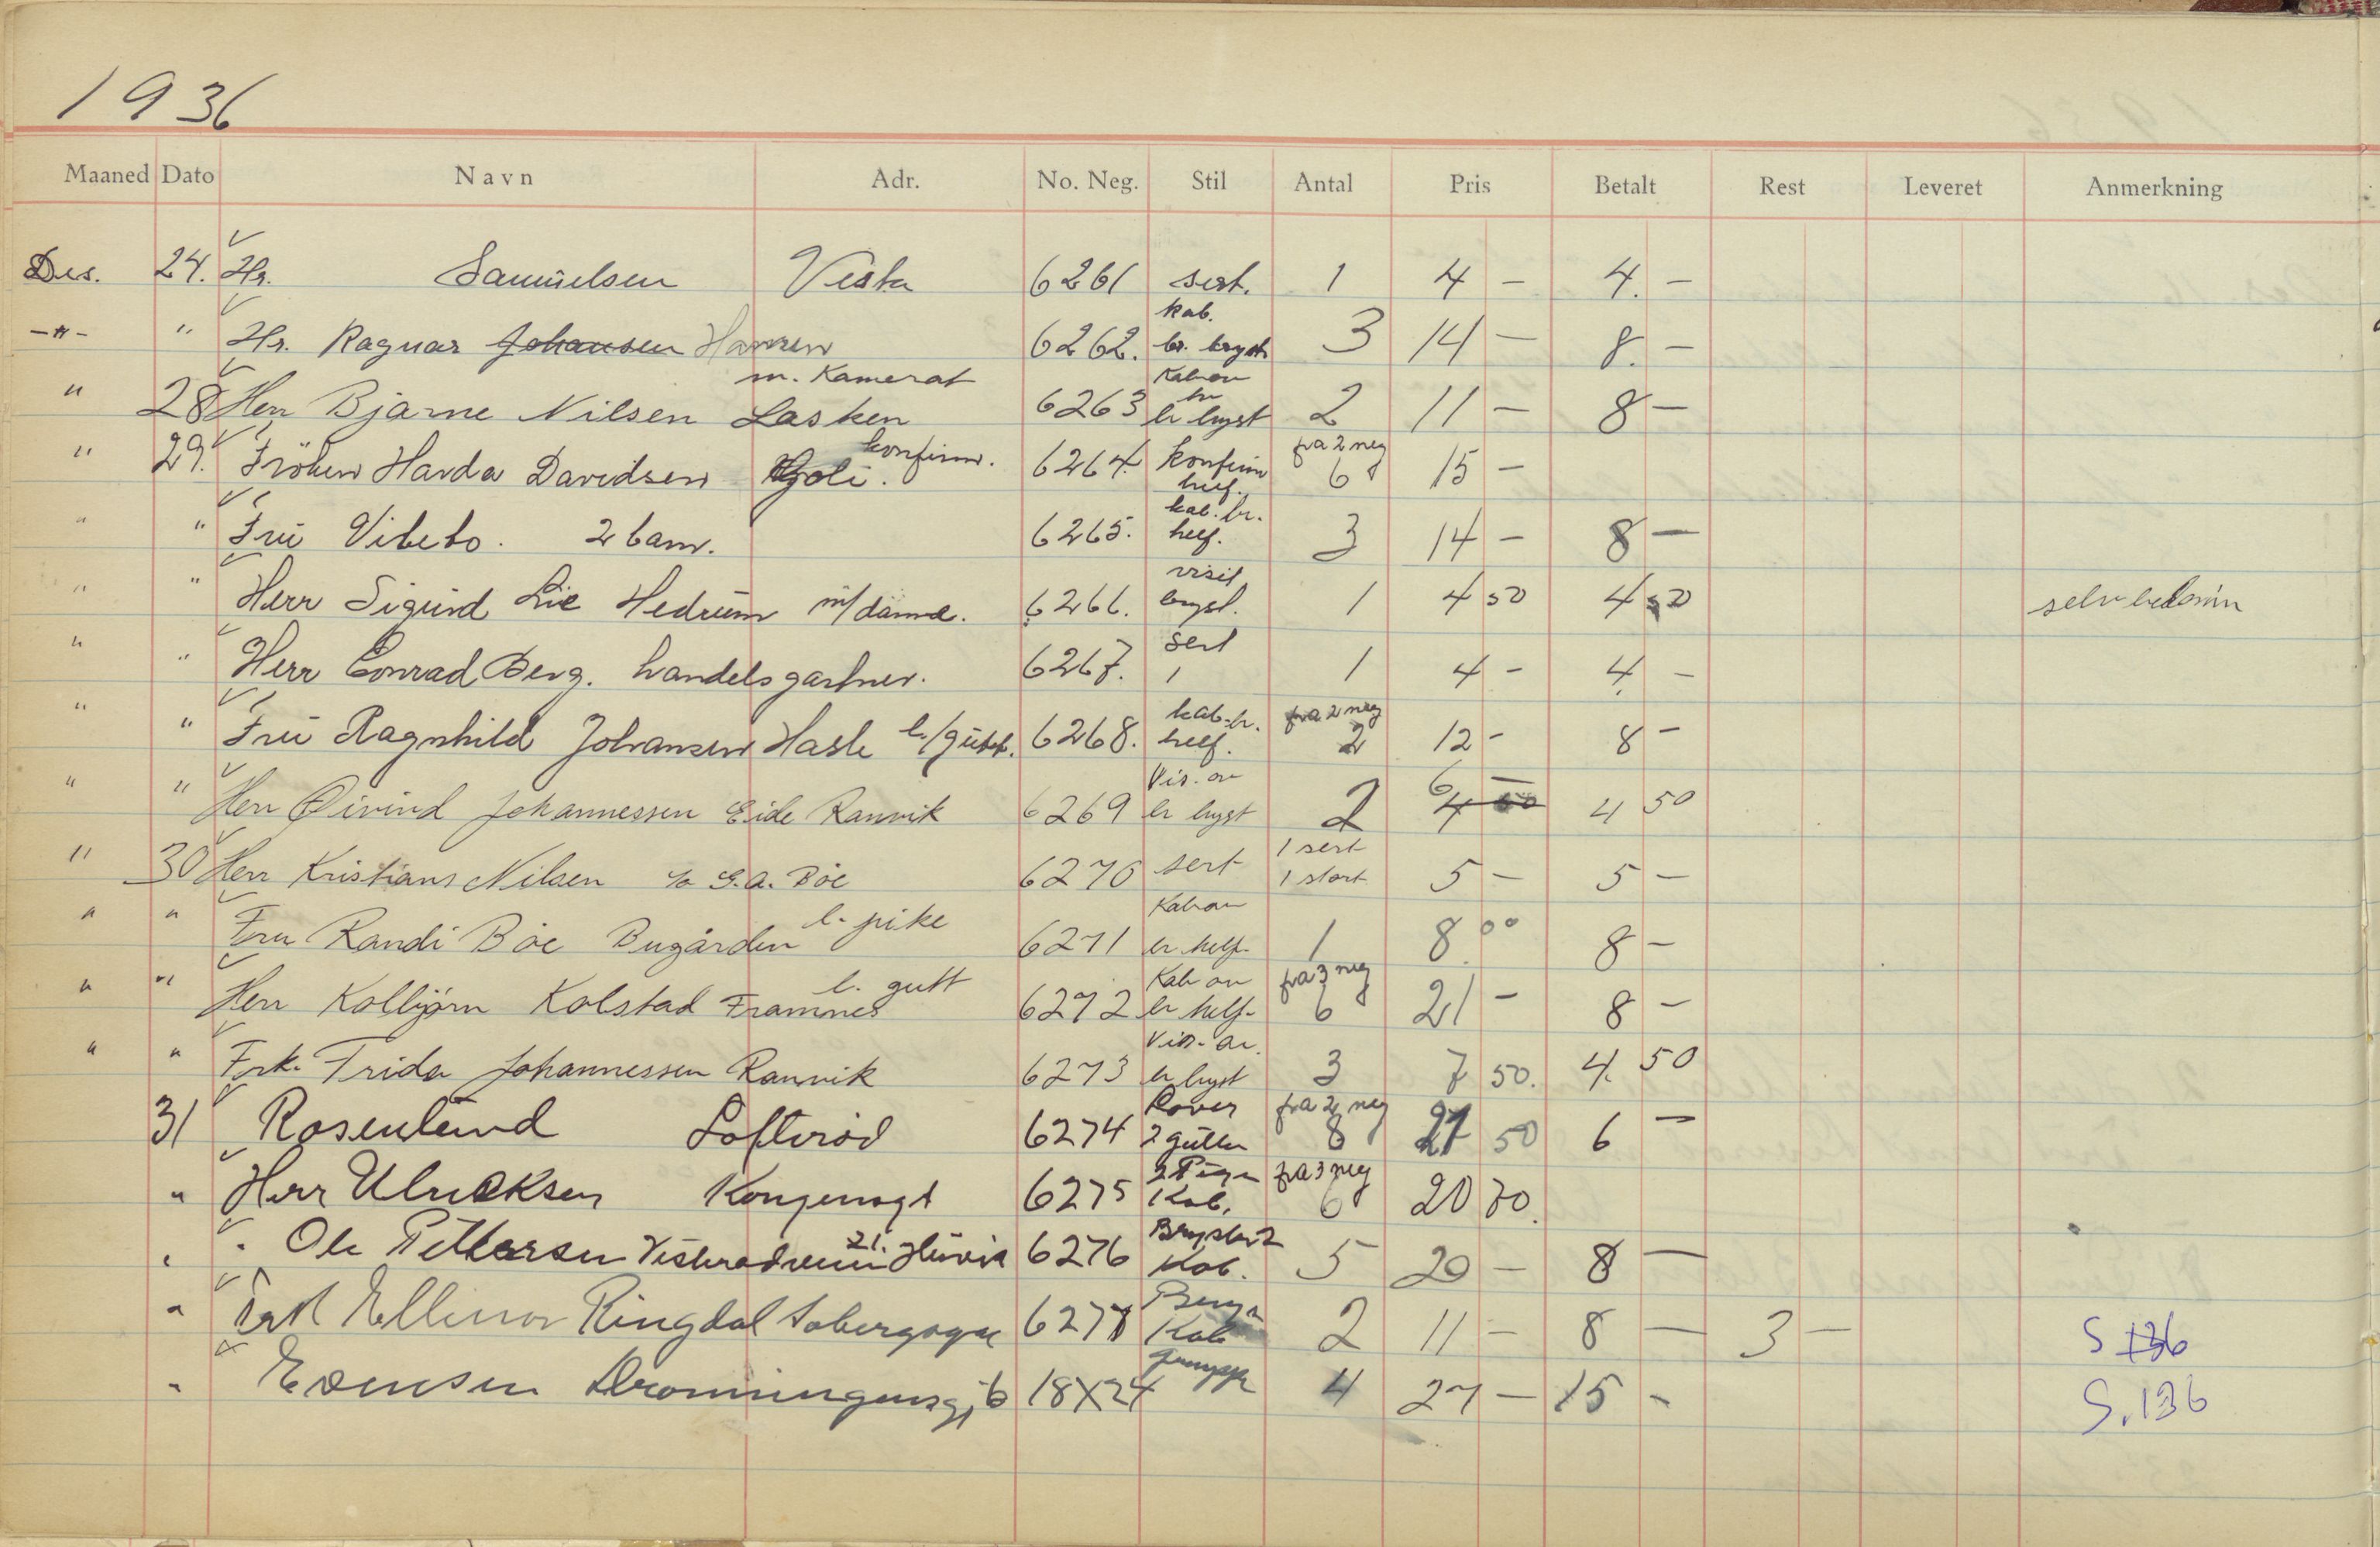 1936
Maaned Dato Navn Adr. No. Neg. Stil Antal Pris Betalt Rest Leveret Anmerkning
Des. 24. Hr. Samuelsen Vesta 6261 sert. 1 4 - 4. -
kab.
-"- " Hr. Ragnar Johansen Hansen 6262. br. bryst 3 14 - 8. -
m. Kamerat
" 28 Herr Bjarne Nilsen Lasken 6263 br bryst 2 11 - 8 -
konfirm. fra 2 neg
" 29. Fröken Harda Davidsen Gjoli. 6264. konfirm helf. 6 15 -
kab. br.
" " Fru Vibeto. 2 barn. 6265. helf. 3 14 - 8 -
visit
" " Herr Sigurd Lie Hedrum m/dame. 6266. bryst. 1 4 50 4 50
sert
" " Herr Conrad Berg. handelsgartner. 6267. 1 1 4 - 4 -
kab. br. fra 2 neg
" " Fru Ragnhild Johansen Hasle l./gutt. 6268. helf. 2 12 - 8 -
Vis. 6 -
" " Herr Øivind Johannessen Eide Ranvik 6269 br bryst 2 4 50 4 50
1 sert
" 30 Herr Kristians Nilsen c/o G.A. Bøe 6270 sert 1 stort 5 - 5 -
l. pike
" " Fru Randi Bøe Bugården 6271 br helf. 1 8. 00 8 -
l. gutt Kab fra 3 neg
" " Herr Kolbjörn Kolstad Framnes 6272 br helf. 6 21 - 8 -
Vis.
" " Frk. Frida Johannessen Ranvik 6273 br bryst 3 7 50. 4. 50
fra 2 neg
31 Rosenlund Lofterød 6274 2 gutter 8 27 50 6 -
fra 3 neg
" Herr Ulricksen Kongensgt 6275 Kab. 6 20 70.
21.
" " Ole Pettersen Huvik 6276 Kab. 5 20 - 8 -
" Frk Ellinor Ringdal 6277 Kab 2 11 - 8 - 3 - S 136
" Evensen Dronningensg, 6 18X24 4 27 - 15 - S. 136